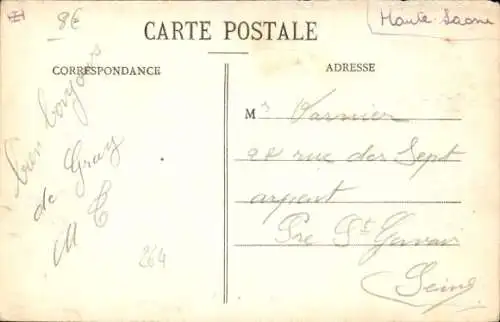 8€
Haute Saone
CARTE POSTALE
CORRESPONDANCE
ADRESSE
bon bonjour
de Gray
M C
264
M Varnier
28 rue des Sept
arpent
Pre St Gervais
Seine